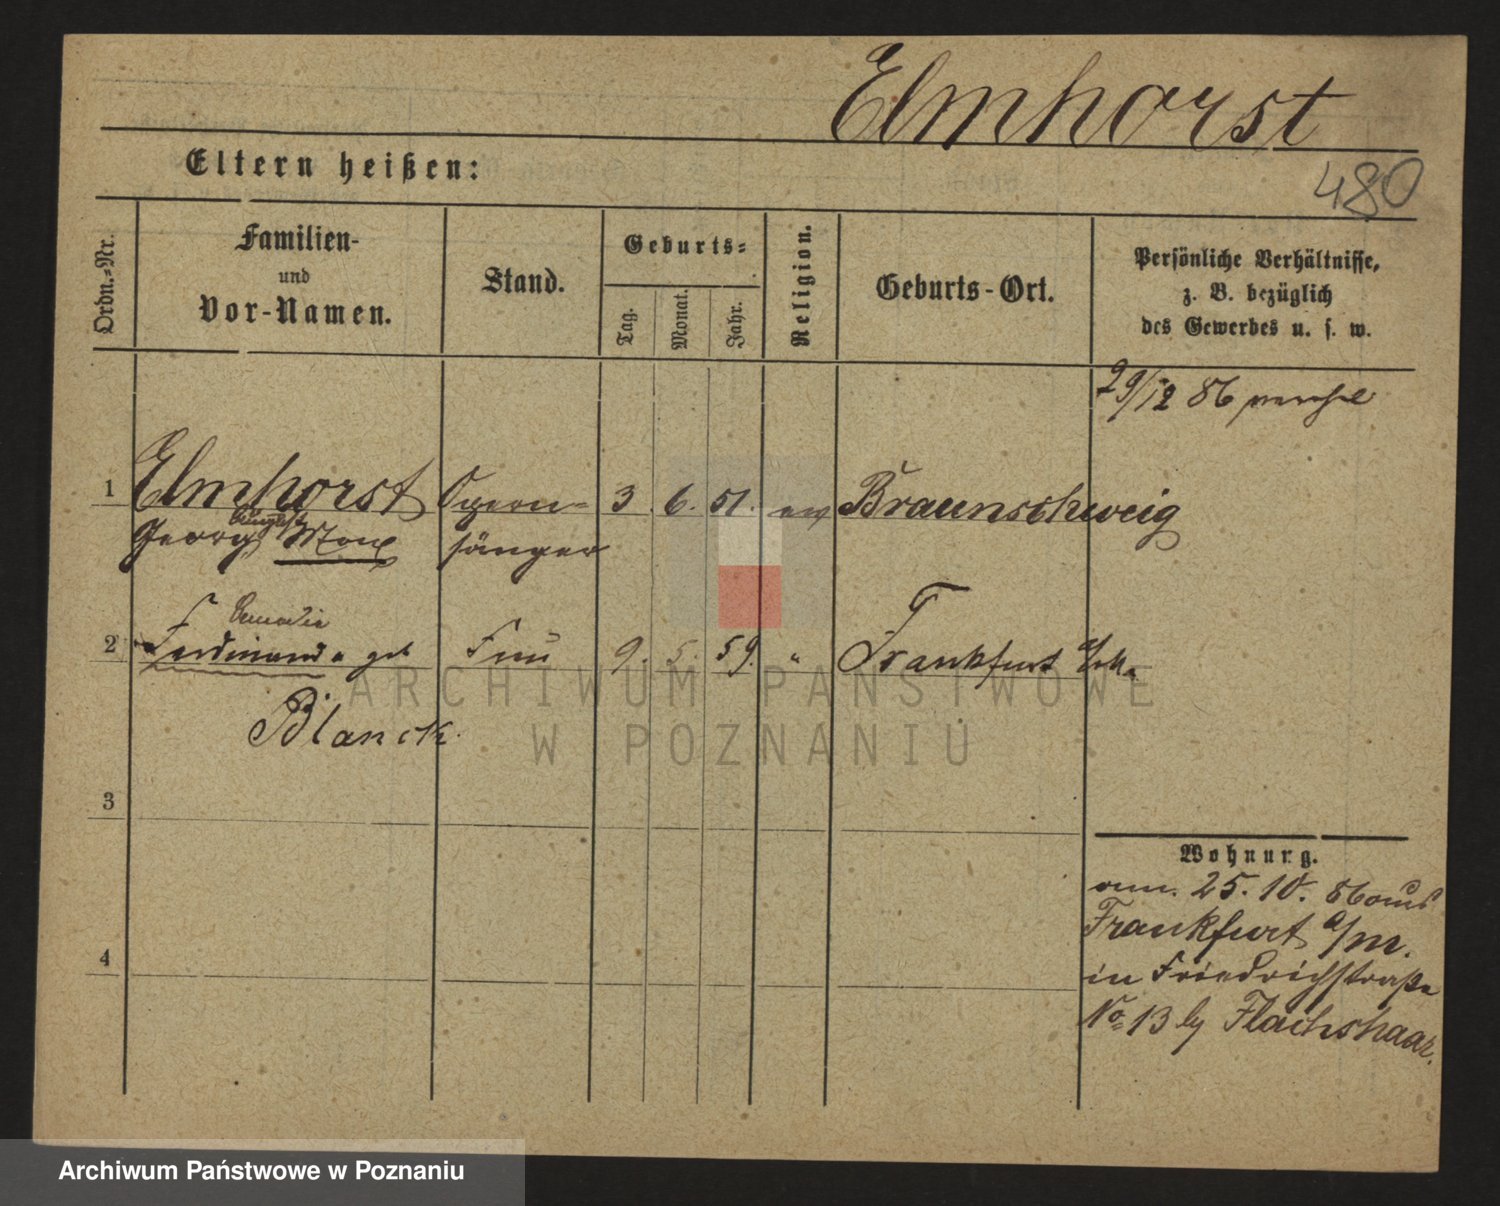 Elmhorst
480
Eltern heißen:
Ordn.-Nr.
Familien-
und
Vor-Namen.
Stand.
Geburts-
Tag.
Monat.
Jahr.
Religion.
Geburts-Ort.
Persönliche Verhältnisse,
z. B. bezüglich
des Gewerbes u. s. w.
29/12 86
1 Elmhorst Opern- 3. 6. 51. ev Braunschweig
August
Georg Max sänger
2 Ferdinande geb Frau 9. 5. 59. " Frankfurt
Blanck.
3
4
Wohnung.
25. 10. 86 aus
Frankfurt a/M.
in Friedrichstraße
No 13 by Flachshaar.
ARCHIWUM PAŃSTWOWE
W POZNANIU
Archiwum Państwowe w Poznaniu